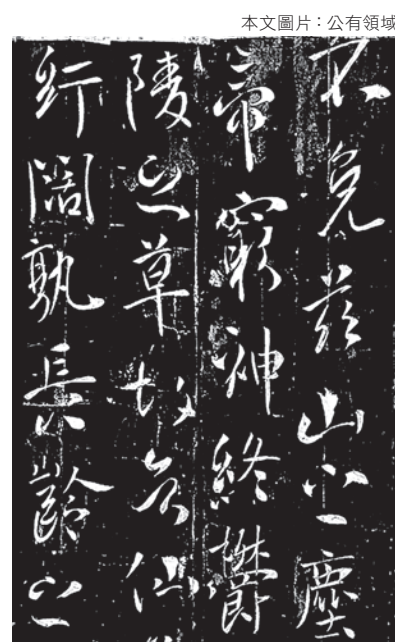 本文圖片：公有領域
不免茲山之塵
帝窮神終鬱
陵之草故知仙
紆闊孰長齡之